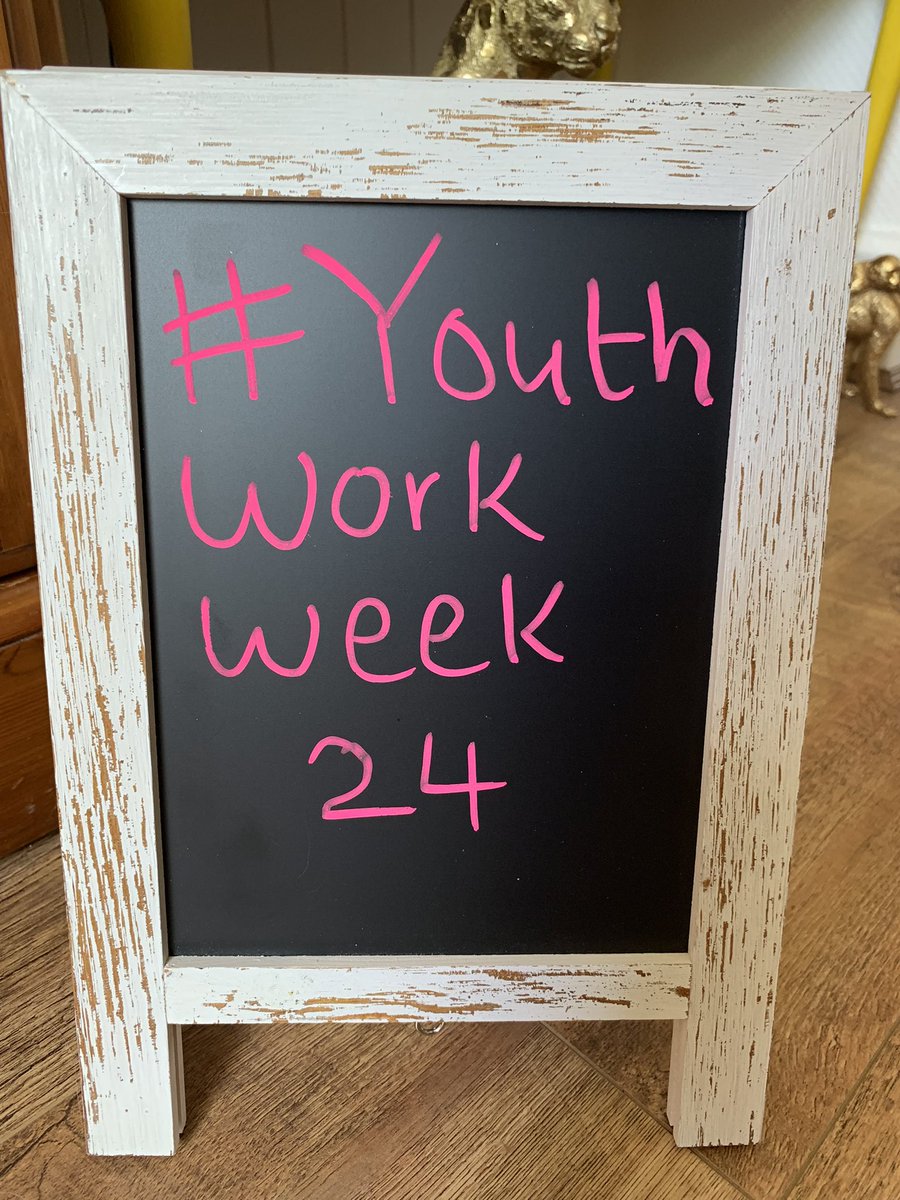 #Youth
Work
Week
24